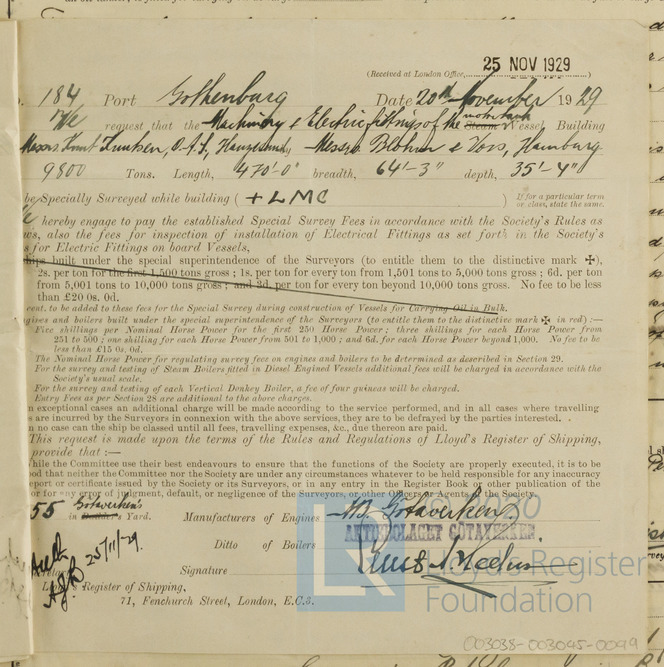 25 NOV 1929
(Received at London Office, )
184 Port Gothenburg Date 20th November 1929
request that the Machinery & Electric fittings of the motor tank Steam Vessel Building
Messrs Knut Knutsen, O.A.S., Haugesund, Messrs Blohm & Voss, Hamburg
9800 Tons. Length, 470'-0" breadth, 64'-3" depth, 35'-4"
be Specially Surveyed while building ( +LMC ) If for a particular term
or class, state the same.
hereby engage to pay the established Special Survey Fees in accordance with the Society's Rules as
ws, also the fees for inspection of installation of Electrical Fittings as set forth in the Society's
s for Electric Fittings on board Vessels,
hips built under the special superintendence of the Surveyors (to entitle them to the distinctive mark ✠),
2s. per ton for the first 1,500 tons gross ; 1s. per ton for every ton from 1,501 tons to 5,000 tons gross ; 6d. per ton
from 5,001 tons to 10,000 tons gross ; and 3d. per ton for every ton beyond 10,000 tons gross. No fee to be less
than £20 0s. 0d.
cent. to be added to these fees for the Special Survey during construction of Vessels for Carrying Oil in Bulk.
gines and boilers built under the special superintendence of the Surveyors (to entitle them to the distinctive mark ✠ in red) :—
Five shillings per Nominal Horse Power for the first 250 Horse Power ; three shillings for each Horse Power from
251 to 500 ; one shilling for each Horse Power from 501 to 1,000 ; and 6d. for each Horse Power beyond 1,000. No fee to be
less than £15 0s. 0d.
The Nominal Horse Power for regulating survey fees on engines and boilers to be determined as described in Section 29.
For the survey and testing of Steam Boilers fitted in Diesel Engined Vessels additional fees will be charged in accordance with the
Society's usual scale.
For the survey and testing of each Vertical Donkey Boiler, a fee of four guineas will be charged.
Entry Fees as per Section 28 are additional to the above charges.
n exceptional cases an additional charge will be made according to the service performed, and in all cases where travelling
s are incurred by the Surveyors in connection with the above services, they are to be defrayed by the parties interested.
n no case can the ship be classed until all fees, travelling expenses, &c., due thereon are paid.
This request is made upon the terms of the Rules and Regulations of Lloyd's Register of Shipping,
provide that :—
hile the Committee use their best endeavours to ensure that the functions of the Society are properly executed, it is to be
od that neither the Committee nor the Society are under any circumstances whatever to be held responsible for any inaccuracy
eport or certificate issued by the Society or its Surveyors, or in any entry in the Register Book or other publication of the
or for any error of judgment, default, or negligence of the Surveyors, or other Officers or Agents of the Society.
55 in Götaverken's Yard. Manufacturers of Engines AB. Götaverken
AKTIEBOLAGET GÖTAVERKEN
Ditto of Boilers
25/11/29
Signature
Lloyd's Register of Shipping,
71, Fenchurch Street, London, E.C.3.
LR
© 2020
Lloyd's Register
Foundation
003038-003045-0099